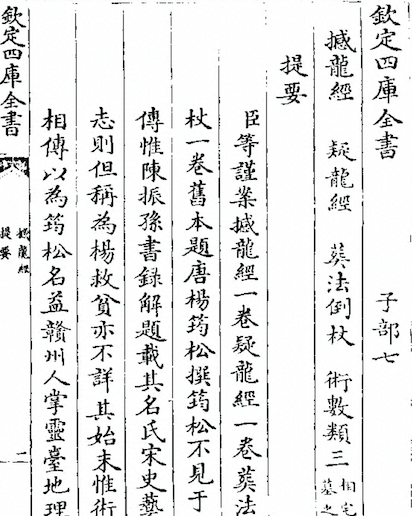 欽定四庫全書　子部七
撼龍經　疑龍經　葬法倒杖　術數類三 相宅
墓之
提要
臣等謹案撼龍經一卷疑龍經一卷葬法
杖一卷舊本題唐楊筠松撰筠松不見于
傳惟陳振孫書錄解題載其名氏宋史藝
志則但稱為楊救貧亦不詳其始末惟術
相傳以為筠松名益贛州人掌靈臺地理
欽定四庫全書
撼龍經
提要
一